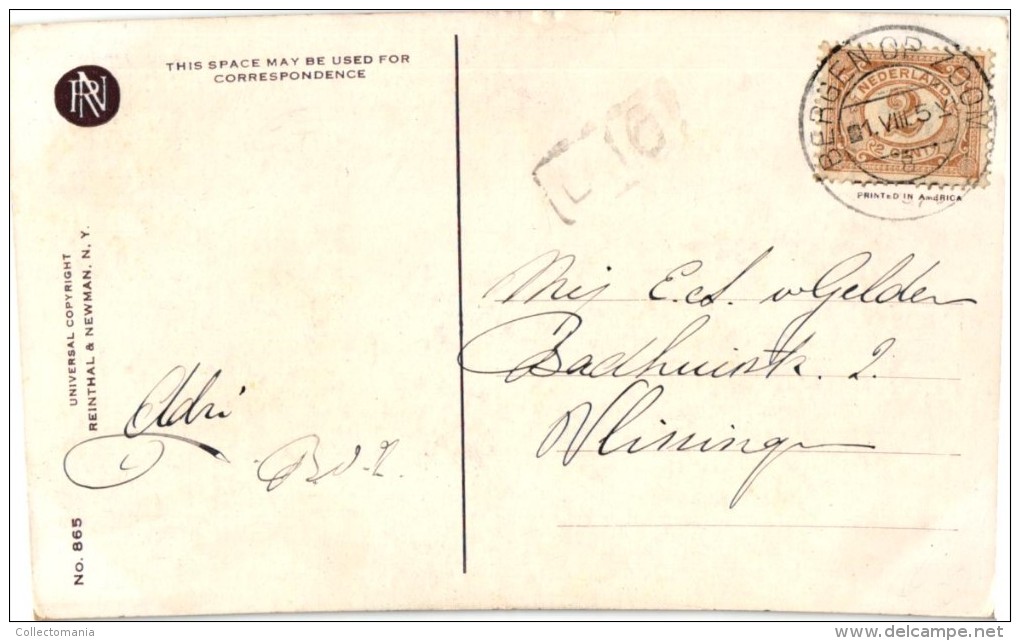 RN
THIS SPACE MAY BE USED FOR
CORRESPONDENCE
UNIVERSAL COPYRIGHT
REINTHAL & NEWMAN, N. Y.
No. 865
Adri
B.v.Z.
BERGEN OP ZOOM
1.VIII.
NEDERLAND
2
2 CENT
PRINTED IN AmERICA
Mej E.c.S. v Gelder
Badhuisstr. 2.
Vlissingen
Collectomania
www.delcampe.net